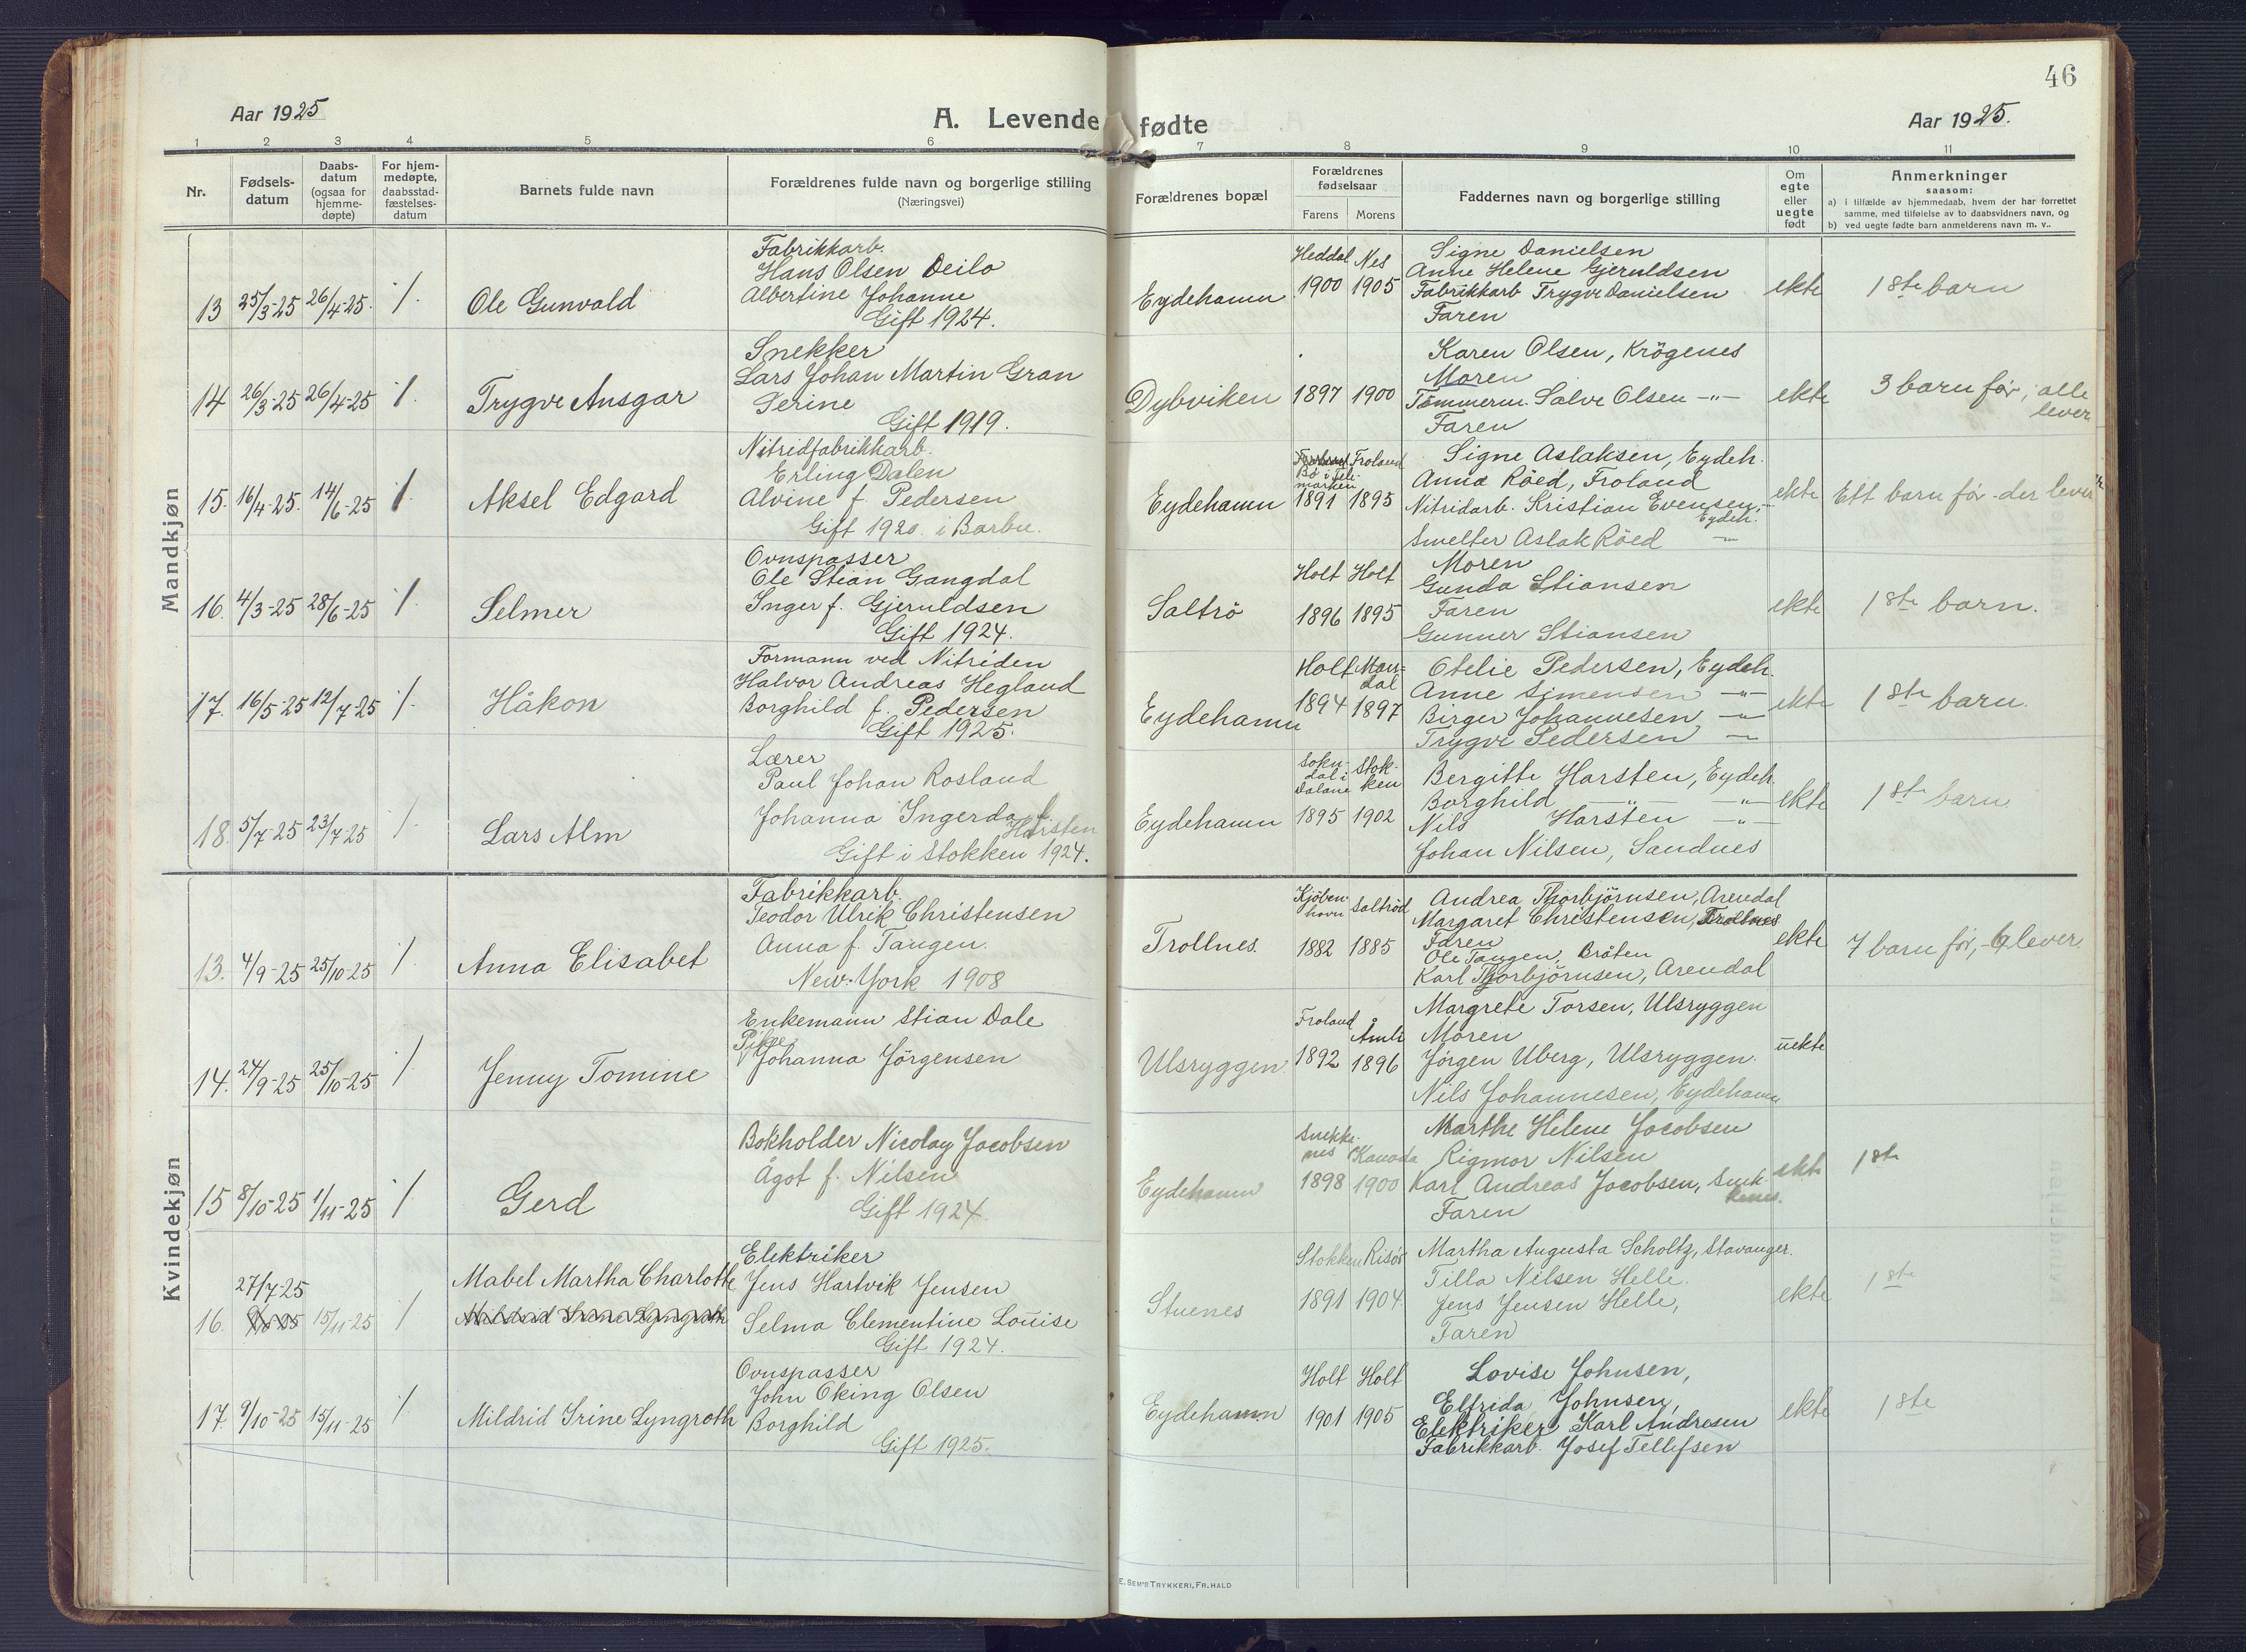 46
Aar 1925
A. Levende fødte
Aar 1925.
1 2 3 4 5 6 7 8 9 10 11
Nr.
Fødsels-
datum
Daabs-
datum
(ogsaa for
hjemme-
døpte)
For hjem-
medøpte,
daabsstad-
fæstelses-
datum
Barnets fulde navn
Forældrenes fulde navn og borgerlige stilling
(Næringsvei)
Forældrenes bopæl
Forældrenes
fødselsaar
Farens Morens
Faddernes navn og borgerlige stilling
Om
egte
eller
uegte
født
Anmerkninger
saasom:
a) i tilfælde av hjemmedaab, hvem der har forrettet
samme, med tilføielse av to daabsvidners navn, og
b) ved uegte fødte barn anmelderens navn m. v..
Mandkjøn
13 25/3-25 26/4-25. /.
Ole Gunvald
Fabrikkarb.
Hans Olsen Deilo
Albertine Johanne
Gift 1924.
Eydehamn
Heddal Nes
1900 1905
Signe Danielsen
Anne Helene Gjeruldsen
Fabrikkarb Trygve Danielsen
Faren
ekte
1ste barn
14 26/3-25 26/4-25 /.
Trygve Ansgar
Snekker
Lars Johan Martin Gran
Serine
Gift 1919.
Dybviken
1897 1900
Karen Olsen, Krögenes
Moren
Tömmerm. Salve Olsen -"-
Faren
ekte
3 barn før, alle
lever
15. 16/4-25. 14/6-25 /.
Aksel Edgard
Nitridfabrikkarb.
Erling Dalen
Alvine f. Pedersen
Gift 1920. i Barbu.
Eydehamn
Froland
Bø i Tele
marken
1891 1895
Signe Aslaksen, Eydeh.
Anna Röed, Froland
Nitridarb. Kristian Evensen,
Eydeh.
Smelter Aslak Röed -"-
ekte
Ett barn før - der lever
16. 4/3-25 28/6-25 /.
Selmer
Ovnspasser
Ole Stian Gangdal
Inger f. Gjeruldsen
Gift 1924.
Saltrö
Holt Holt
1896 1895
Moren
Gunda Stiansen
Faren
Gunner Stiansen
ekte
1ste barn.
17. 16/5-25 12/7-25 /.
Håkon
Formann ved Nitriden
Halvor Andreas Hegland
Borghild f. Pedersen
Gift 1925.
Eydehamn
Holt Man=
dal
1894 1897
Otelie Pedersen, Eydeh.
Anne Simensen -"-
Birger Johannesen -"-
Trygve Pedersen -"-
ekte
1ste barn.
18. 5/7-25 23/7-25 /.
Lars Alm
Lærer
Paul Johan Rosland
Johanna Ingerda f.
Harsten
Gift i Stokken 1924.
Eydehamn
Sokn-
dal i
Dalane
Stok-
ken
1895 1902
Bergitte Harsten, Eydeh.
Borghild -"- -"-
Nils Harsten -"-
Johan Nilsen, Sandnes
ekte
1ste barn
Kvindekjøn
13. 4/9-25 25/10-25 /.
Anna Elisabet
Fabrikkarb.
Teodor Ulrik Christensen
Anna f. Tangen.
New-York 1908
Trollnes.
Kjöben-
havn
Saltröd
1882 1885
Andrea Thorbjörnsen, Arendal
Margaret Christensen, Trollnes
Faren
Ole Tangen, Bråten
Karl Thorbjörnsen, Arendal
ekte
7 barn før, - 6 lever.
14. 24/9-25 25/10-25 /.
Jenny Tomine
Enkemann Stian Dale
Pike
Johanna Jörgensen
Ulsryggen
Froland
Åmli
1892 1896
Margrete Torsen, Ulsryggen
Moren
Jørgen Uberg, Ulsryggen.
Nils Johannesen, Eydehamn
uekte
15 8/10-25 1/11-25 /
Gerd
Bokholder Nicolay Jacobsen
Ågot f. Nilsen
Gift 1924.
Eydehamn
Snekke-
nes
Kanada
1898 1900
Marthe Helene Jacobsen
Rigmor Nilsen
Karl Andreas Jacobsen, Snek-
kenes.
Faren
ekte
1ste
27/7-25
16. 15/11-25 /
Mabel Martha Charlotte
Mildrid Irene Lyngroth
Elektriker
Jens Hartvik Jensen
Selma Clementine Louise
Gift 1924.
Stuenes
Stokken Risör
1891 1904.
Martha Augusta Scholtz, Stavanger.
Tilla Nilsen Helle.
Jens Jensen Helle,
Faren
ekte
1ste
17. 9/10-25 15/11-25 /
Mildrid Irine Lyngroth
Ovnspasser
John Oking Olsen
Borghild
Gift 1925.
Eydehamn
Holt Holt
1901 1905
Lovise Johnsen,
Elfrida Johnsen,
Elektriker Karl Andresen
Fabrikkarb. Josef Tellefsen
ekte
1ste
E. SEM'S TRYKKERI, FR.HALD